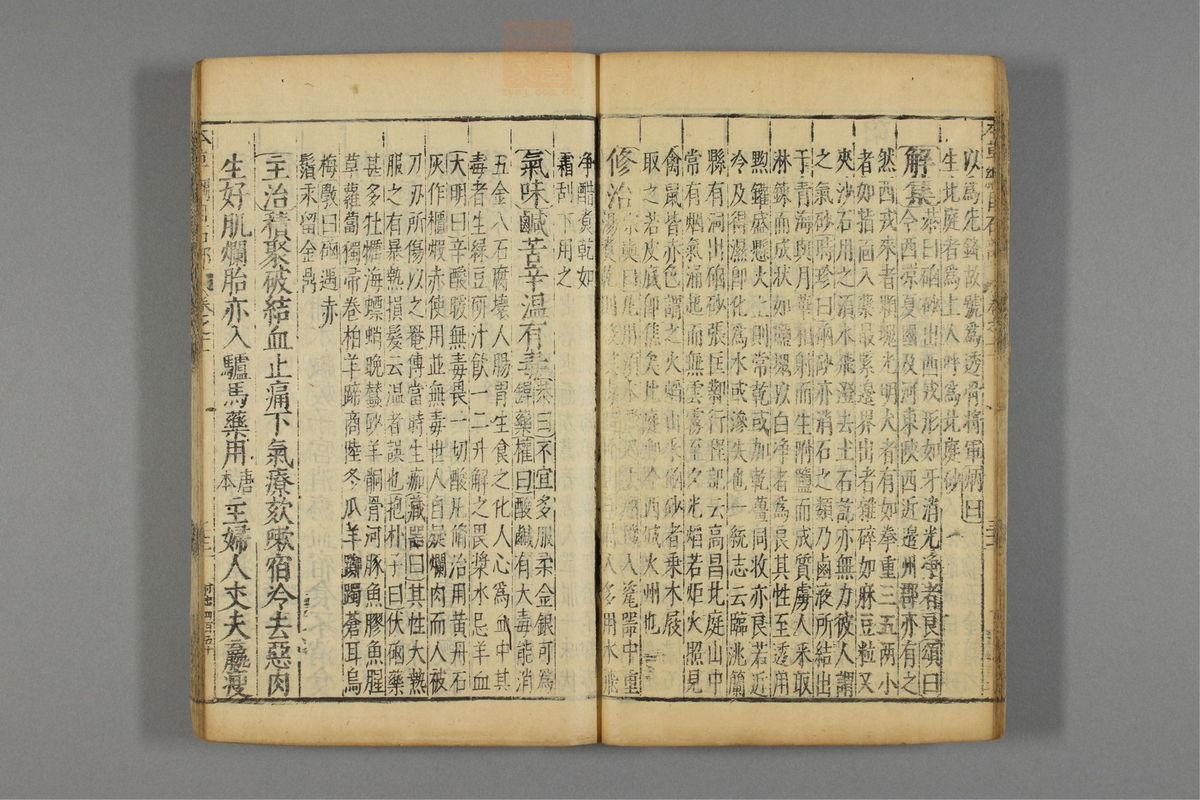 以為先鋒故號為透骨將軍炳曰
生北庭者為上人呼為北庭砂
解集恭曰硇砂出西戎形如牙消光淨者良頌曰
今西涼夏國及河東陝西近邊州郡亦有之
然西戎來者顆塊光明大者有如拳重三五兩小
者如指面入藥最緊邊界出者雜碎如麻豆粒又
夾沙石用之須水飛澄去土石訖亦無力彼人謂
之氣砂時珍曰硇砂亦消石之類乃鹵液所結出
于青海與月華相射而生附鹽而成質虜人采取
淋鍊而成狀如鹽塊以白淨者為良其性至透用
黝罐盛懸火上則常乾或加乾薑同收亦良若近
冷及得濕即化為水或滲失也一統志云臨洮蘭
縣有洞出硇砂張匡鄴行程記云高昌北庭山中
常有烟氣涌起而無雲霧至夕光熖若炬火照見
禽鼠皆赤色謂之火熖山采硇砂者乘木屐
取之若皮底即焦矣北庭即今西域火州也
修治宗奭曰凡用須水飛過入瓷器中重
湯煮
淨醋煮乾如
霜刮下用之
氣味鹹苦辛温有毒恭曰不宜多服柔金銀可為
銲藥權曰酸鹹有大毒能消
五金八石腐壞人腸胃生食之化人心為血中其
毒者生綠豆研汁飲一二升解之畏漿水忌羊血
大明曰辛酸暖無毒畏一切酸凡脩治用黄丹石
灰作櫃煆赤使用並無毒世人自疑爛肉而人被
刀刃所傷以之罨傅當時生痂藏器曰其性大熱
服之有暴熱損髮云温者誤也抱朴子曰伏硇藥
甚多牡蠣海螵蛸晚蠶砂羊䯊骨河豚魚膠魚腥
草蘿蔔獨帚卷栢羊蹄商陸冬瓜羊躑躅蒼耳烏
梅斆曰硇遇赤
鬚汞留金鼎
主治積聚破結血止痛下氣療欬嗽宿冷去惡肉
生好肌爛胎亦入驢馬藥用唐本主婦人丈夫羸瘦